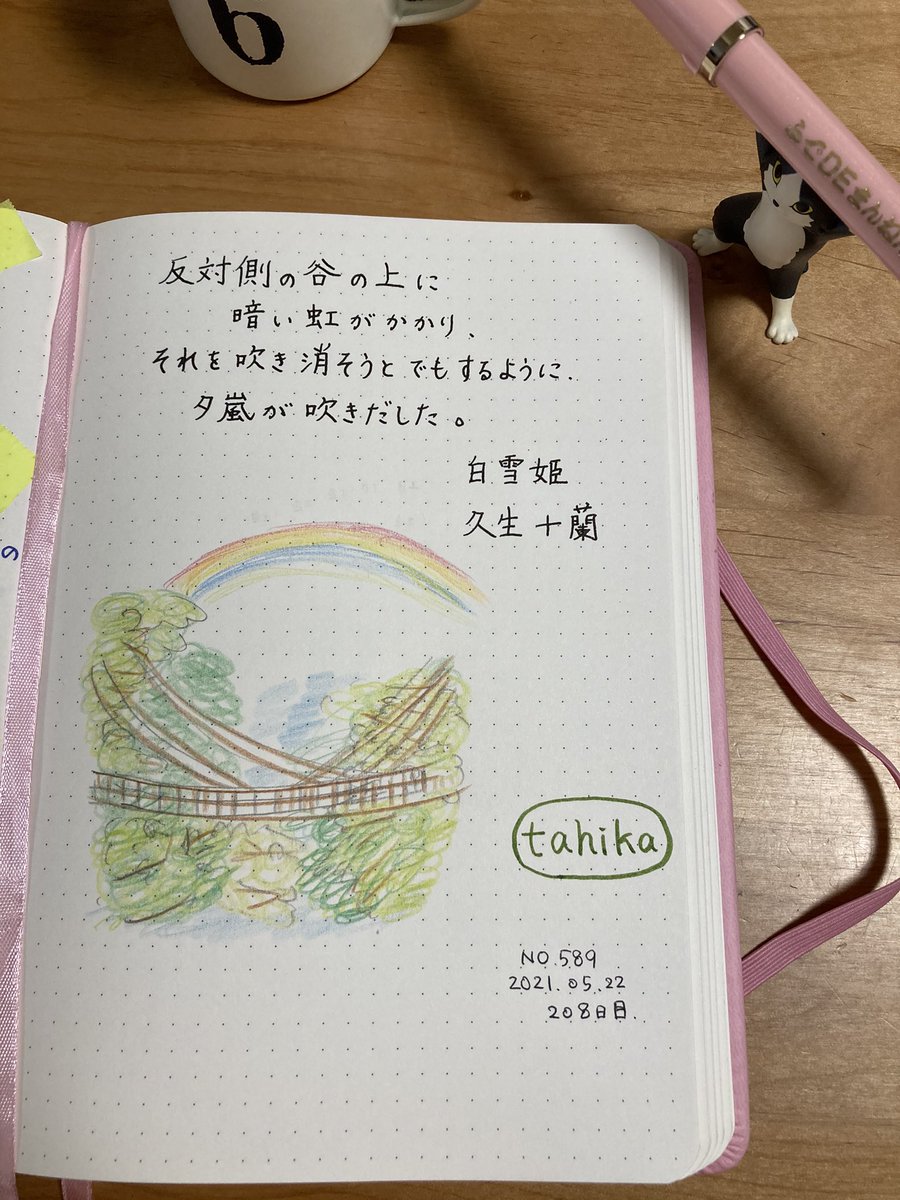 6
ふでDEまんねん
反対側の谷の上に
暗い虹がかかり、
それを吹き消そうとでもするように、
夕嵐が吹きだした。
白雪姫
久生十蘭
の
tahika
NO.589
2021.05.22
208日目.